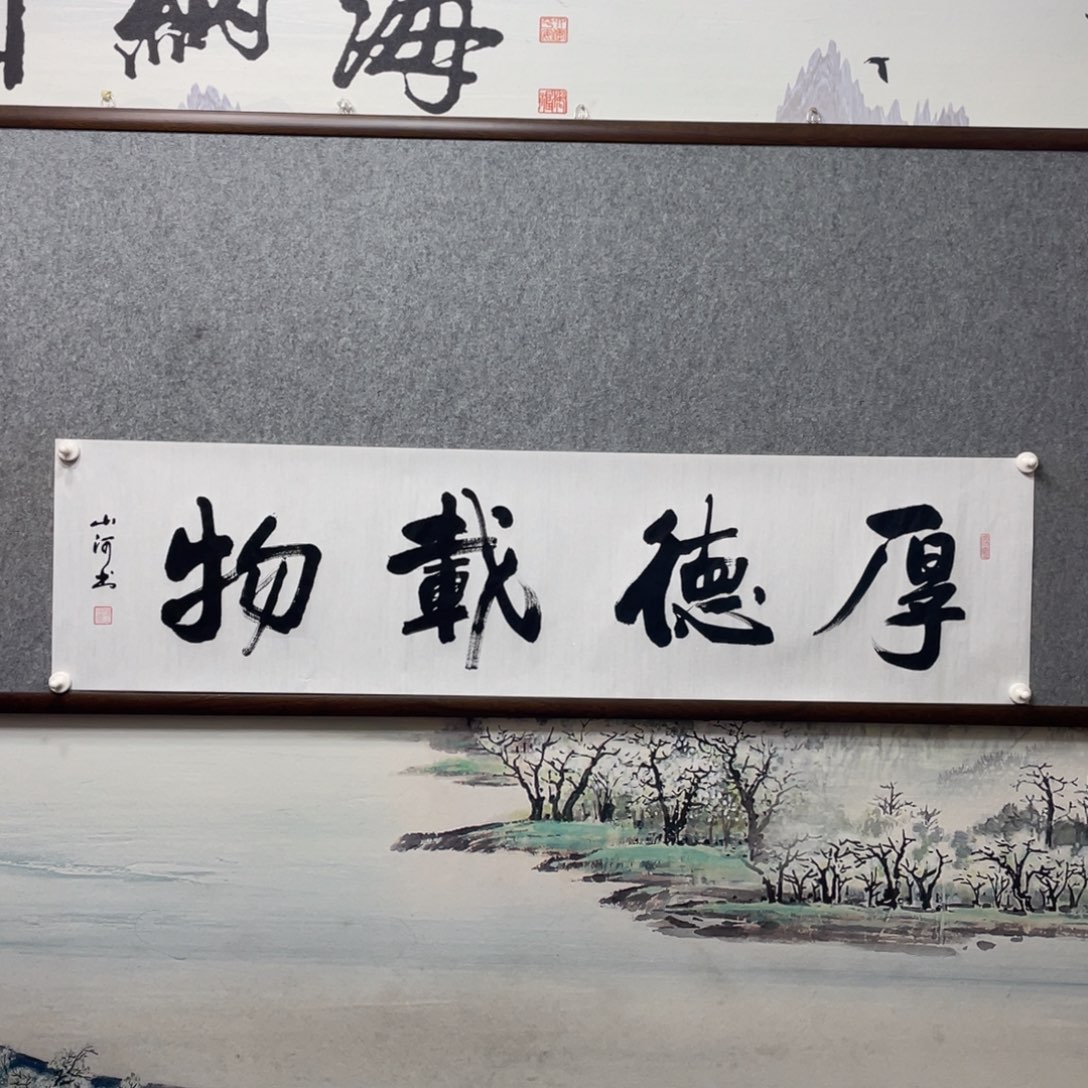 海納
厚德載物
山河书